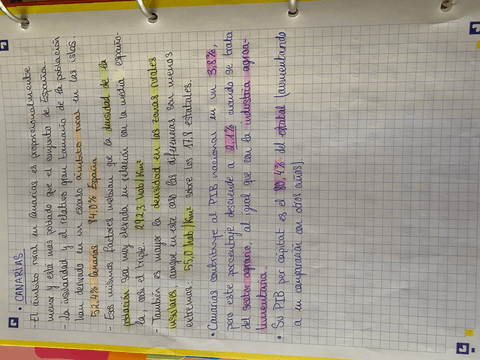 • CANARIAS
- El ámbito rural en Canarias es proporcionalmente
menor y está más poblado que el conjunto de España.
- La insularidad y el relativo gran tamaño de la población
han derivado en un escaso ámbito rural en las islas.
52,4% Canarias 84,0% España
- Esos mismos factores motivan que la densidad de la
población sea muy elevada en relación con la media españo-
la, casi el triple 292,3 hab/Km²
- También es mayor la densidad en las zonas rurales
insulares, aunque en este caso las diferencias son menos
extremas: 55,0 hab/Km² sobre los 17,8 estatales.
• Canarias contribuye al PIB nacional en un 3,8%,
pero este porcentaje desciende a 2,1% cuando se trata
del sector agrario, al igual que con la industria agroa-
limentaria
• Su PIB per cápita es el 80,4% del estatal (aumentando
a en comparación con otros años)